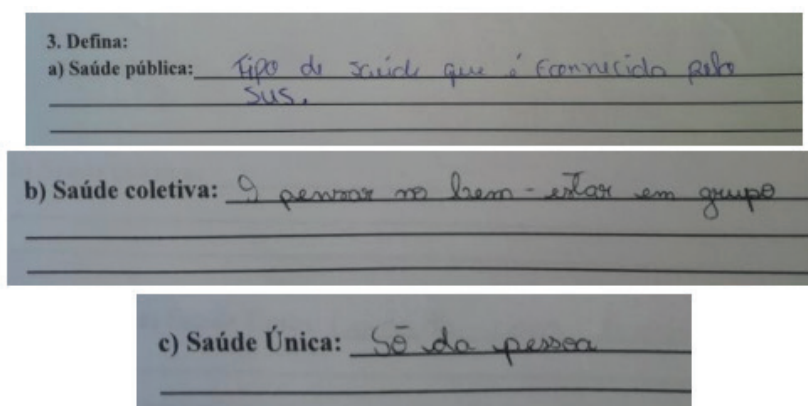 3. Defina:
a) Saúde pública: Tipo de saúde que é fornecida pelo
SUS.
b) Saúde coletiva: O pensar no bem-estar em grupo
c) Saúde Única: Só da pessoa